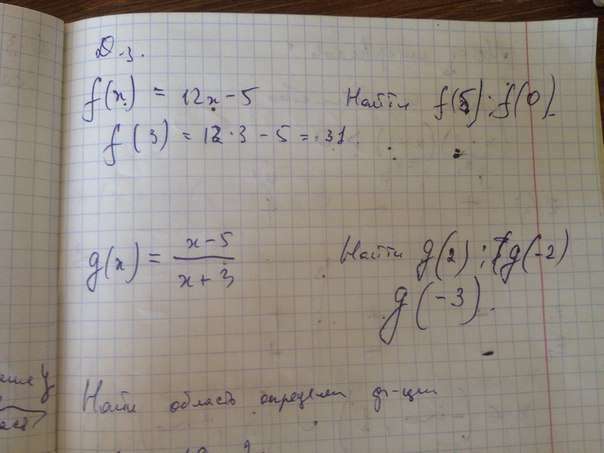 Д.з.
f(x) = 12x - 5 Найти f(5); f(0)
f(3) = 12·3 - 5 = 31
g(x) = (x-5)/(x+3) Найти g(2); g(-2)
g(-3).
Найти область определ ф-ции